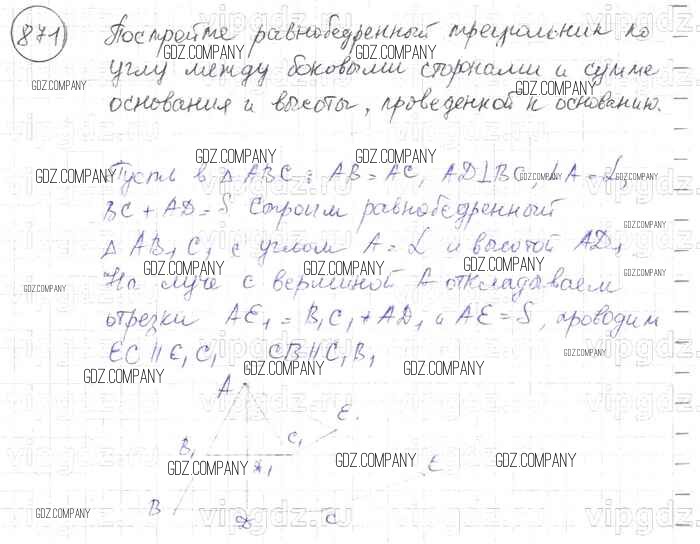 871 Постройте равнобедренный треугольник по
углу между боковыми сторонами и сумме
основания и высоты, проведенной к основанию.
Пусть в △ABC: AB = AC, AD⊥BC, ∠A = α,
BC + AD = S Строим равнобедренный
△ AB₁C₁ с углом A = α и высотой AD₁
На луче с вершиной A откладываем
отрезки AE₁ = B₁C₁ + AD₁ и AE = S, проводим
EC ∥ E₁C₁ CB ∥ C₁B₁
A
E₁
B₁ C₁
E
B D C
GDZ.COMPANY
vipgdz.ru